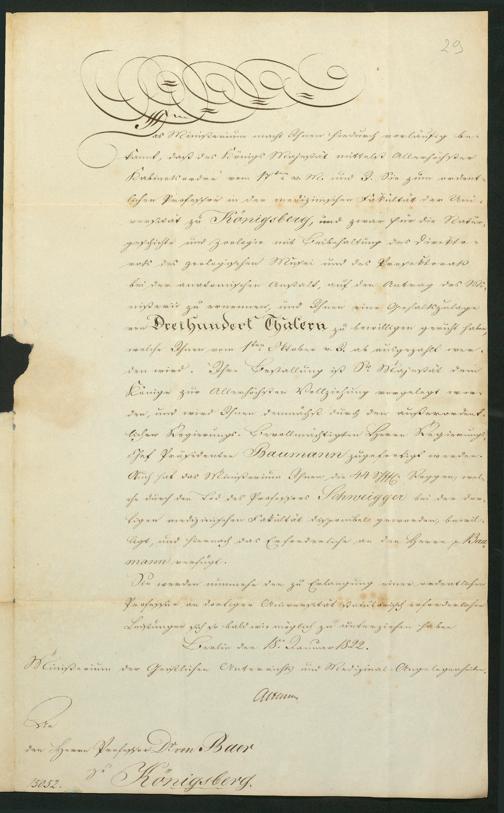 29
Das Ministerium macht Ihnen hiedurch vorläufig be-
kannt, daß des Königs Majestät mittelst Allerhöchster
Kabinetsordre vom 17ten v. M. und J. Sie zum ordent-
lichen Professor in der medizinischen Fakultät der Uni-
versität zu Königsberg, und zwar für die Natur-
geschichte und Zoologie mit Beibehaltung des Direkto-
rats des zoologischen Musei und des Prosektorats
bei der anatomischen Anstalt, auf den Antrag des Mi-
nisterii zu ernennen, und Ihnen eine Gehaltszulage
von Dreihundert Thalern zu bewilligen geruht haben,
welche Ihnen vom 1ten Oktober v. J. ab ausgezahlt wer-
den wird. Ihre Bestallung ist Sr. Majestät dem
Könige zur Allerhöchsten Vollziehung vorgelegt wor-
den, und wird Ihnen demnächst durch den außerordent-
lichen Regierungs-Bevollmächtigten Herrn Regierungs-
Chef Präsidenten Baumann zugefertigt werden.
Auch hat das Ministerium Ihnen die 44 Roggen, wel-
che durch den Tod des Professors Schweigger bei der dor-
tigen medizinischen Fakultät disponibel geworden, bewil-
ligt, und hiernach das Erforderliche an den Herrn p. Bau
mann verfügt.
Sie werden nunmehr den zu Erlangung einer ordentlichen
Professur an dortiger Universität statutarisch erforderlichen
Leistungen sich so bald wie möglich zu unterziehen haben
Berlin den 18n Januar 1822.
Ministerium der Geistlichen Unterrichts und Medizinal-Angelegenheiten.
Altenstein
An
den Herrn Professor Dr. von Baer
zu Königsberg.